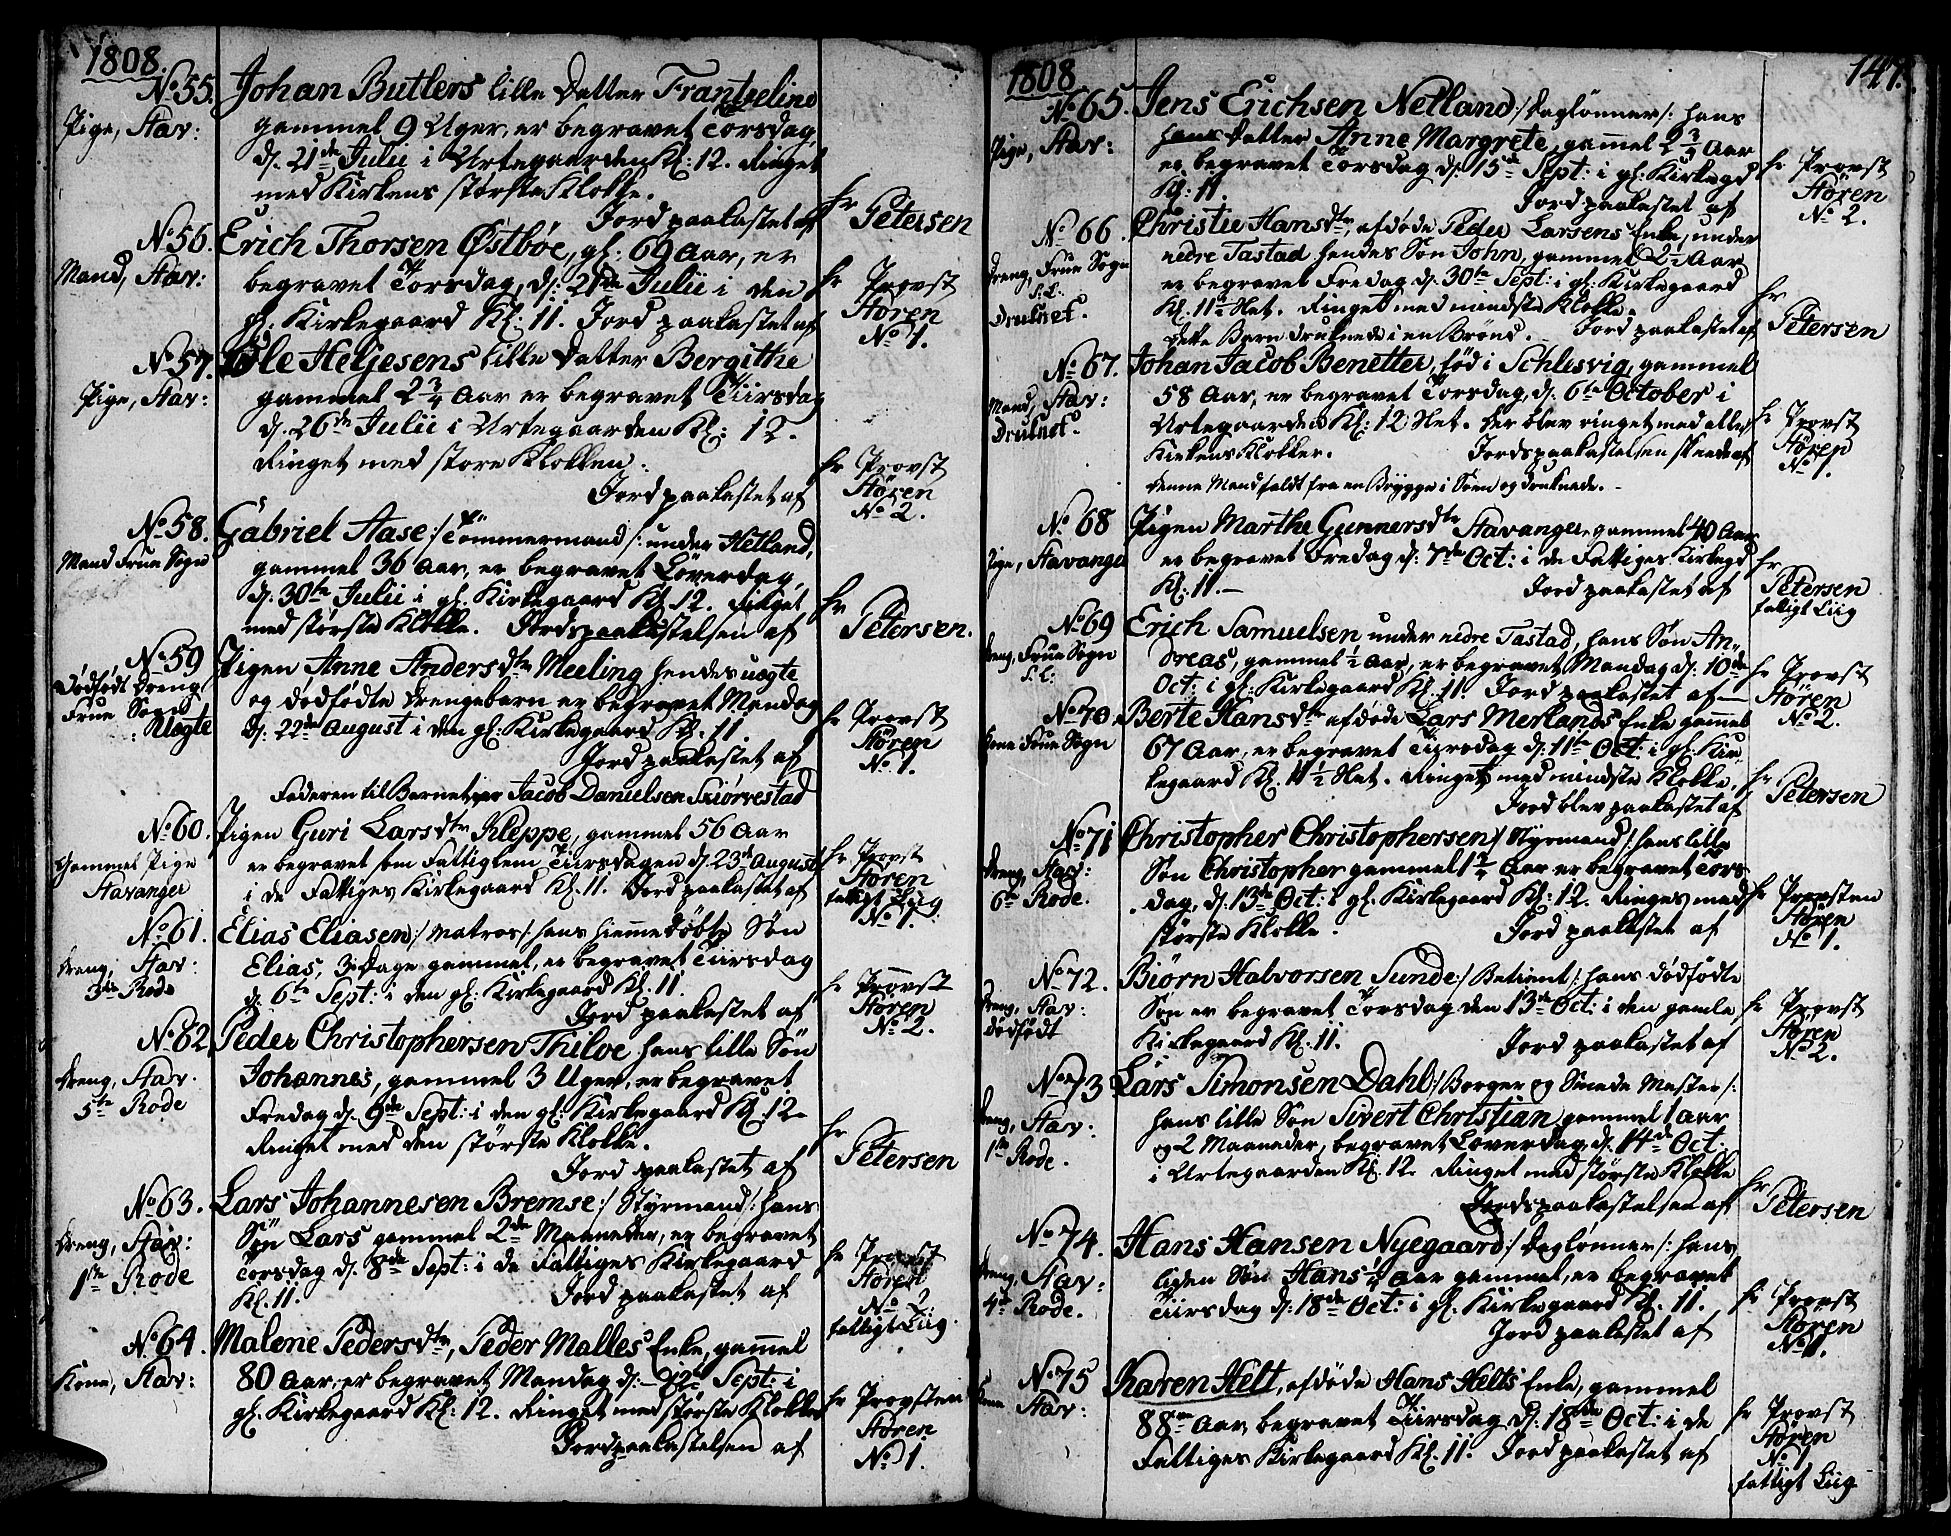 1808.
No 55.
Pige, Stav:
Johan Butlers lille Datter Frantzeline
gammel 9 Uger, er begravet Torsdag
d. 21de Julii i Urtegaarden Kl: 12. Ringet
med Kirkens største Klokke.
Jord paakastet af
hr Petersen
No 56.
Mand, Stav:
Erich Thorsen Østbøe, gl: 69 Aar, er
begravet Torsdag, d: 21de Julii i den
gl: Kirkegaard Kl: 11. Jord paakastet af
hr Provst
Stören
No 1.
No 57.
Pige, Stav:
Ole Heljesens lille Datter Bergithe
gammel 2 3/4 Aar er begravet Tiirsdag
d. 26de Julii i Urtegaarden Kl: 12.
Ringet med store Klokken.
Jord paakastet af
hr Provst
Stören
No 2.
No 58.
Mand Frue Sogn
Gabriel Aase /: Tömmermand :/ under Hetland,
gammel 36 Aar, er begravet Löverdag,
d. 30te Julii i gl. Kirkegaard Kl 12. Ringet
med største Klokke. Jordspaakastelsen af
hr Petersen.
No 59
Dödfödt Dreng
Frue Sogn
Uægte
Pigen Anne Andersdtr Meeling hendes uægte
og dødfødte Drengebarn er begravet Mandag
d. 22de August i den gl: Kirkegaard Kl. 11
Jord paakastet af
hr Provst
Stören
No 1.
Faderen til Barnet, er Jacob Danielsen Skiörvestad
No 60.
Gammel Pige
Stavanger
Pigen Guri Larsdtr Kleppe, gammel 56 Aar
er begravet som Fattiglem Tiirsdagen d. 23de August
i de Fattiges Kirkegaard Kl. 11. Jord paakastet af
hr Provst
Stören
fattigt Liig
No 1.
No 61.
Dreng, Stav:
3de Rode
Elias Eliasen /: Matros :/ hans hiemmedøbte Søn
Elias, 3 Dage gammel, er begravet Tiirsdag
d. 6te Sept: i den gl: Kirkegaard Kl. 11.
Jord paakastet af
hr Provst
Stören
No 2.
No 62
Dreng, Stav.
5te Rode
Peder Christophersen Thiloe hans lille Søn
Johannes, gammel 3 Uger, er begravet
Fredag d. 9de Sept: i den gl: Kirkegaard Kl. 12.
Ringet med den største Klokke.
Jord paakastet af
hr Petersen
No 63.
Dreng, Stav:
1ste Rode
Lars Johannesen Bremse /: Styrmand :/ hans
Søn Lars gammel 2de Maaneder, er begravet
Torsdag d. 8de Sept: i de Fattiges Kirkegaard
Kl. 11. Jord paakastet af
hr Provst
Stören
No 2
fattigt Liig.
No 64.
Kone, Stav:
Malene Pedersdtr, Peder Malles Enke, gammel
80 Aar, er begravet Mandag d: 12te Sept: i
gl. Kirkegaard Kl: 12. Ringet med største Klokke
Jordpaakastelsen af
hr Provsten
Stören
No 1.
1808
147.
No 65.
Pige, Stav:
Jens Erichsen Nelland /: Daglønner :/ hans
hans Datter Anne Margrete, gammel 2 3/4 Aar
er begravet Torsdag d. 15de Sept: i gl: Kirkegd
Kl: 11. Jord paakastet af
hr Provst
Stören
No 2.
No 66.
Dreng, Frue Sogn
S. L.
Druknet.
Christie Hansdtr, afdøde Peder Larsens Enke, under
nedre Tastad hendes Søn John, gammel 2 1/2 Aar
er begravet Fredag d. 30te Sept: i gl: Kirkegaard
Kl. 11 Slet. Ringet med mindste Klokke.
Dette Barn druknede i en Brönd. Jord paakastet af
hr Petersen
No 67.
Mand, Stav:
Druknet.
Johan Jacob Benetter, föd i Schlesvig, gammel
58 Aar, er begravet Torsdag, d. 6te October i
Urtegaarden Kl: 12 Slet. Der blev ringet med alle
Kirkens Klokker. Jordspaakastelsen skeede af
hr Provst
Stören
No 1.
Denne Mand faldt fra en Brygge i Søen og druknede.
No 68
Pige, Stavanger
Pigen Marthe Gunnersdtr Stavanger, gammel 40 Aar
er begravet Fredag d. 7de Oct: i de Fattiges Kirkegd
Kl. 11. Jord paakastet af
hr Petersen
fattigt Liig
No 69
Dreng, Frue Sogn
S. L.
Erich Samuelsen under nedre Tastad, hans Søn An-
dreas, gammel 1/2 Aar, er begravet Mandag d. 10de
Oct: i gl: Kirkegaard Kl. 11. Jord paakastet af
hr Provst
Stören
No 2.
No 70.
Kone Frue Sogn
Berte Hansdtr afdøde Lars Merlands Enke gammel
67 Aar, er begravet Tiirsdag d. 11te Oct: i gl: Kir-
kegaard Kl. 11 1/2 Slet. Ringet med mindste Klokke.
Jord blev paakastet af
hr Petersen
No 71
Dreng, Stav:
6te Rode.
Christopher Christophersen /: Styrmand :/ hans lille
Søn Christopher gammel 1 3/4 Aar er begravet Tors-
dag, d. 13de Oct: i gl. Kirkegaard Kl: 12. Ringes med
største Klokke. Jord paakastet af
hr Provsten
Stören
No 1.
No 72.
Dreng, Stav:
dødfødt
Biörn Halvorsen Sunde /: Betient :/ hans dödfödte
Søn er begravet Torsdag den 13de Oct: i den gamle
Kirkegaard Kl. 11. Jord paakastet af
hr Provst
Stören
No 2.
No 73
Dreng, Stav:
1ste Rode.
Lars Simonsen Dahl /: Borger og Smede Mester :/
hans lille Søn Sivert Christian gammel 1 Aar
og 2 Maaneder, begravet Löverdag d. 14de Oct:
i Urtegaarden Kl. 12. Ringet med største Klokke
Jordspaakastelsen af
hr Petersen
No 74.
Dreng, Stav:
4de Rode.
Hans Hansen Nyegaard /: Daglønner :/ hans
liden Søn Hans 1/2 Aar gammel, er begravet
Tiirsdag d: 18de Oct: i gl. Kirkegaard Kl. 11.
Jord paakastet af
hr Provst
Stören
No 1.
No 75
Kone Stav:
Karen Helt, afdøde Hans Helts Enke, gammel
88 Aar, begravet Tiirsdag d. 18de Oct: i de
Fattiges Kirkegaard Kl. 11. Jord paakastet af
hr Provst
Stören
No 1
fattigt Liig